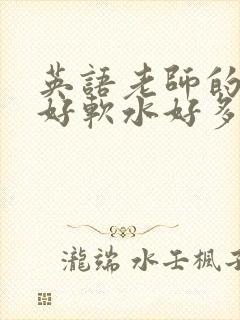 英語老師的
好軟水好多
瀧端 水王楓子